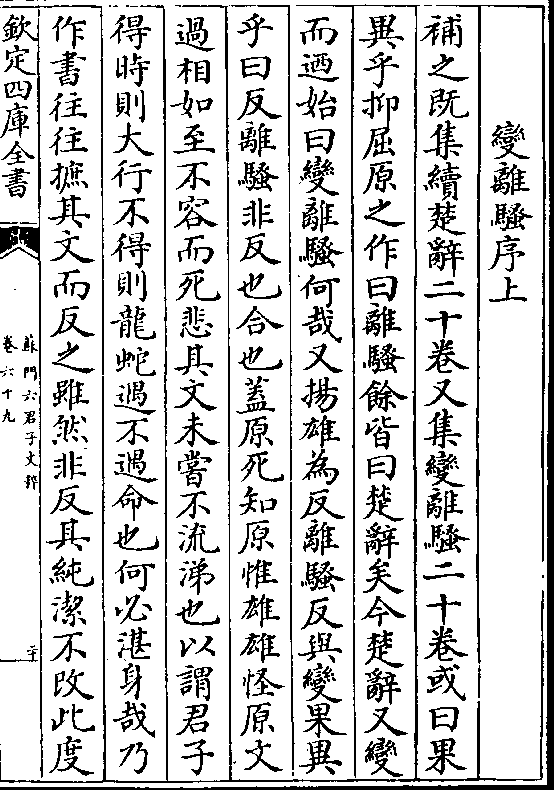 變離騷序上
補之既集續楚辭二十卷又集變離騷二十卷或曰果
異乎抑屈原之作曰離騷餘皆曰楚辭矣今楚辭又變
而迺始曰變離騷何哉又揚雄為反離騷反與變果異
乎曰反離騷非反也合也蓋原死知原惟雄雄怪原文
過相如至不容而死悲其文未嘗不流涕也以謂君子
得時則大行不得則龍蛇遇不遇命也何必湛身哉乃
作書往往摭其文而反之雖然非反其純潔不改此度
欽定四庫全書
蘇門六君子文粹
卷六十九
二十